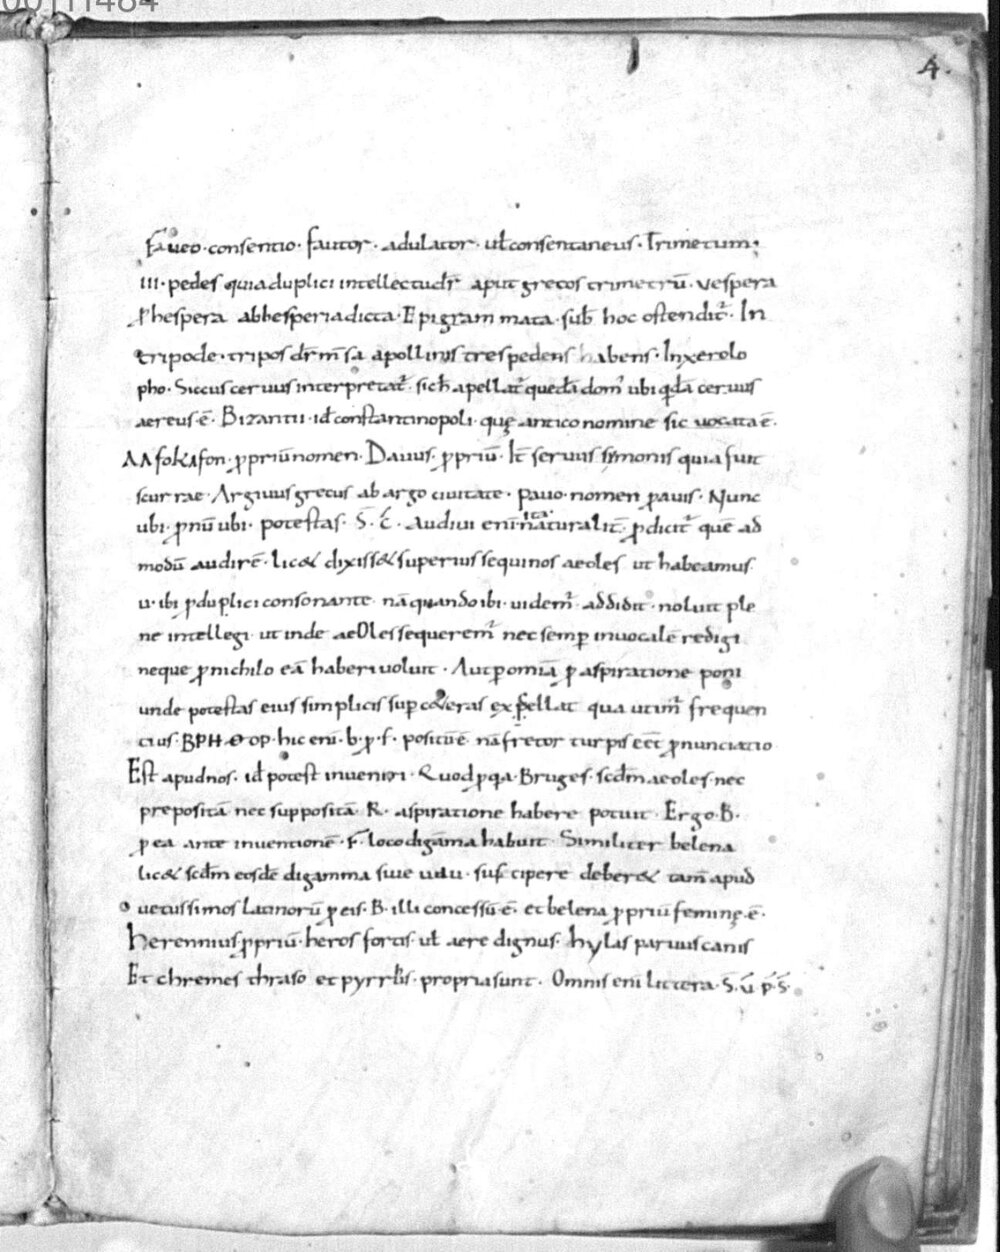 00111484
4.
Faueo· consentio· fautor· adulator· uł consentaneus· Trimetrum·
III· pedes quia duplici intellectu dr̄ aput grecos trimetrū· vespera
ꝓ hespera abbesperia dicta· Epigrammata· sub̄ hoc ostendit᷑· In
tripode· tripos dr̄ m̄sa apollinis tres pedens habens· In xerolo
pho· Siccus ceruus interpretat᷑· sic h̄ apellat᷑ quedā dom᷒ ubi qdā ceruus
aereus·ē· Bizantii· id constantinopoli· quę antico nomine sic uocata ē·
ΛΛfokΛfon· ꝓpriū nomen· Dauus· ꝓpriū· It̄ seruus simonis quia fuit
scurrae· Argiuus grecus ab argo ciuitate· pauo· nomen pauis· Nunc
ubi· ꝓ nū ubi· potestas· S̄· c̄· Audiui eni ita naturalit̄· p̄dicit᷑ quē ad
modū audirē· lic& dixiss& superius sequi nos aeoles ut habeamus
u· ibi ꝓ duplici consonante· nā quando ibi· uidem᷒ addidit· noluit ple
ne intellegi· ut inde aeoles sequerem᷒ nec semp̄ in uocalē redigi
neque ꝓ nichilo eā haberi uoluit· Aut ꝓ omīa ꝓ aspiratione poni
unde potestas eius simplicis sup ceteras expellat qua utim᷒ frequen
cius· BPH·ΘOP· hic eni· b· ꝓ· f· positū ē nā fretor turpis eēt ꝓnunciatio
Est apud nos· id potest inueniri· Quod ꝓ qa· Bruges· scdm aeoles· nec
prepositā nec suppositā· R· aspiratione habere potuit· Ergo· B·
ꝓ ea ante inuentionē· F· loco digāma habuit· Similiter belena
lic& scdm eosdē digamma siue u du· suscipere deber& tam̄ apud
uetussimos Latinorū ꝓ eis· B· illi concessū·ē· et belena ꝓpriū feminę·ē·
herennius ꝓpriū· heros fortis· uł aere dignus· hylas paruus canis
Et chremes thraso et pyrrhus· propria sunt· Omnis eni littera· S̄· ū· p̄· s̄·